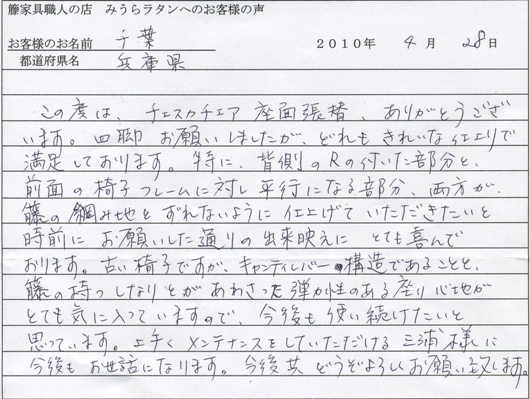 籐家具職人の店　みうらラタンへのお客様の声
お客様のお名前　千葉　2010年　4月　28日
都道府県名　兵庫県
この度は、チェスカチェア座面張替、ありがとうござ
います。四脚お願いしましたが、どれもきれいな仕上りで
満足しております。特に、背側のRの付いた部分と、
前面の椅子フレームに対し平行になる部分、両方が、
籐の編み地とずれないように仕上げていただきたいと
時前にお願いした通りの出来映えにとても喜んで
おります。古い椅子ですが、キャンティレバー構造であることと、
籐の持つしなりとがあわさった弾力性のある座り心地が
とても気に入っていますので、今後も使い続けたいと
思っています。上手くメンテナンスをしていただける三浦様に
今後もお世話になります。今後共どうぞよろしくお願い致します。